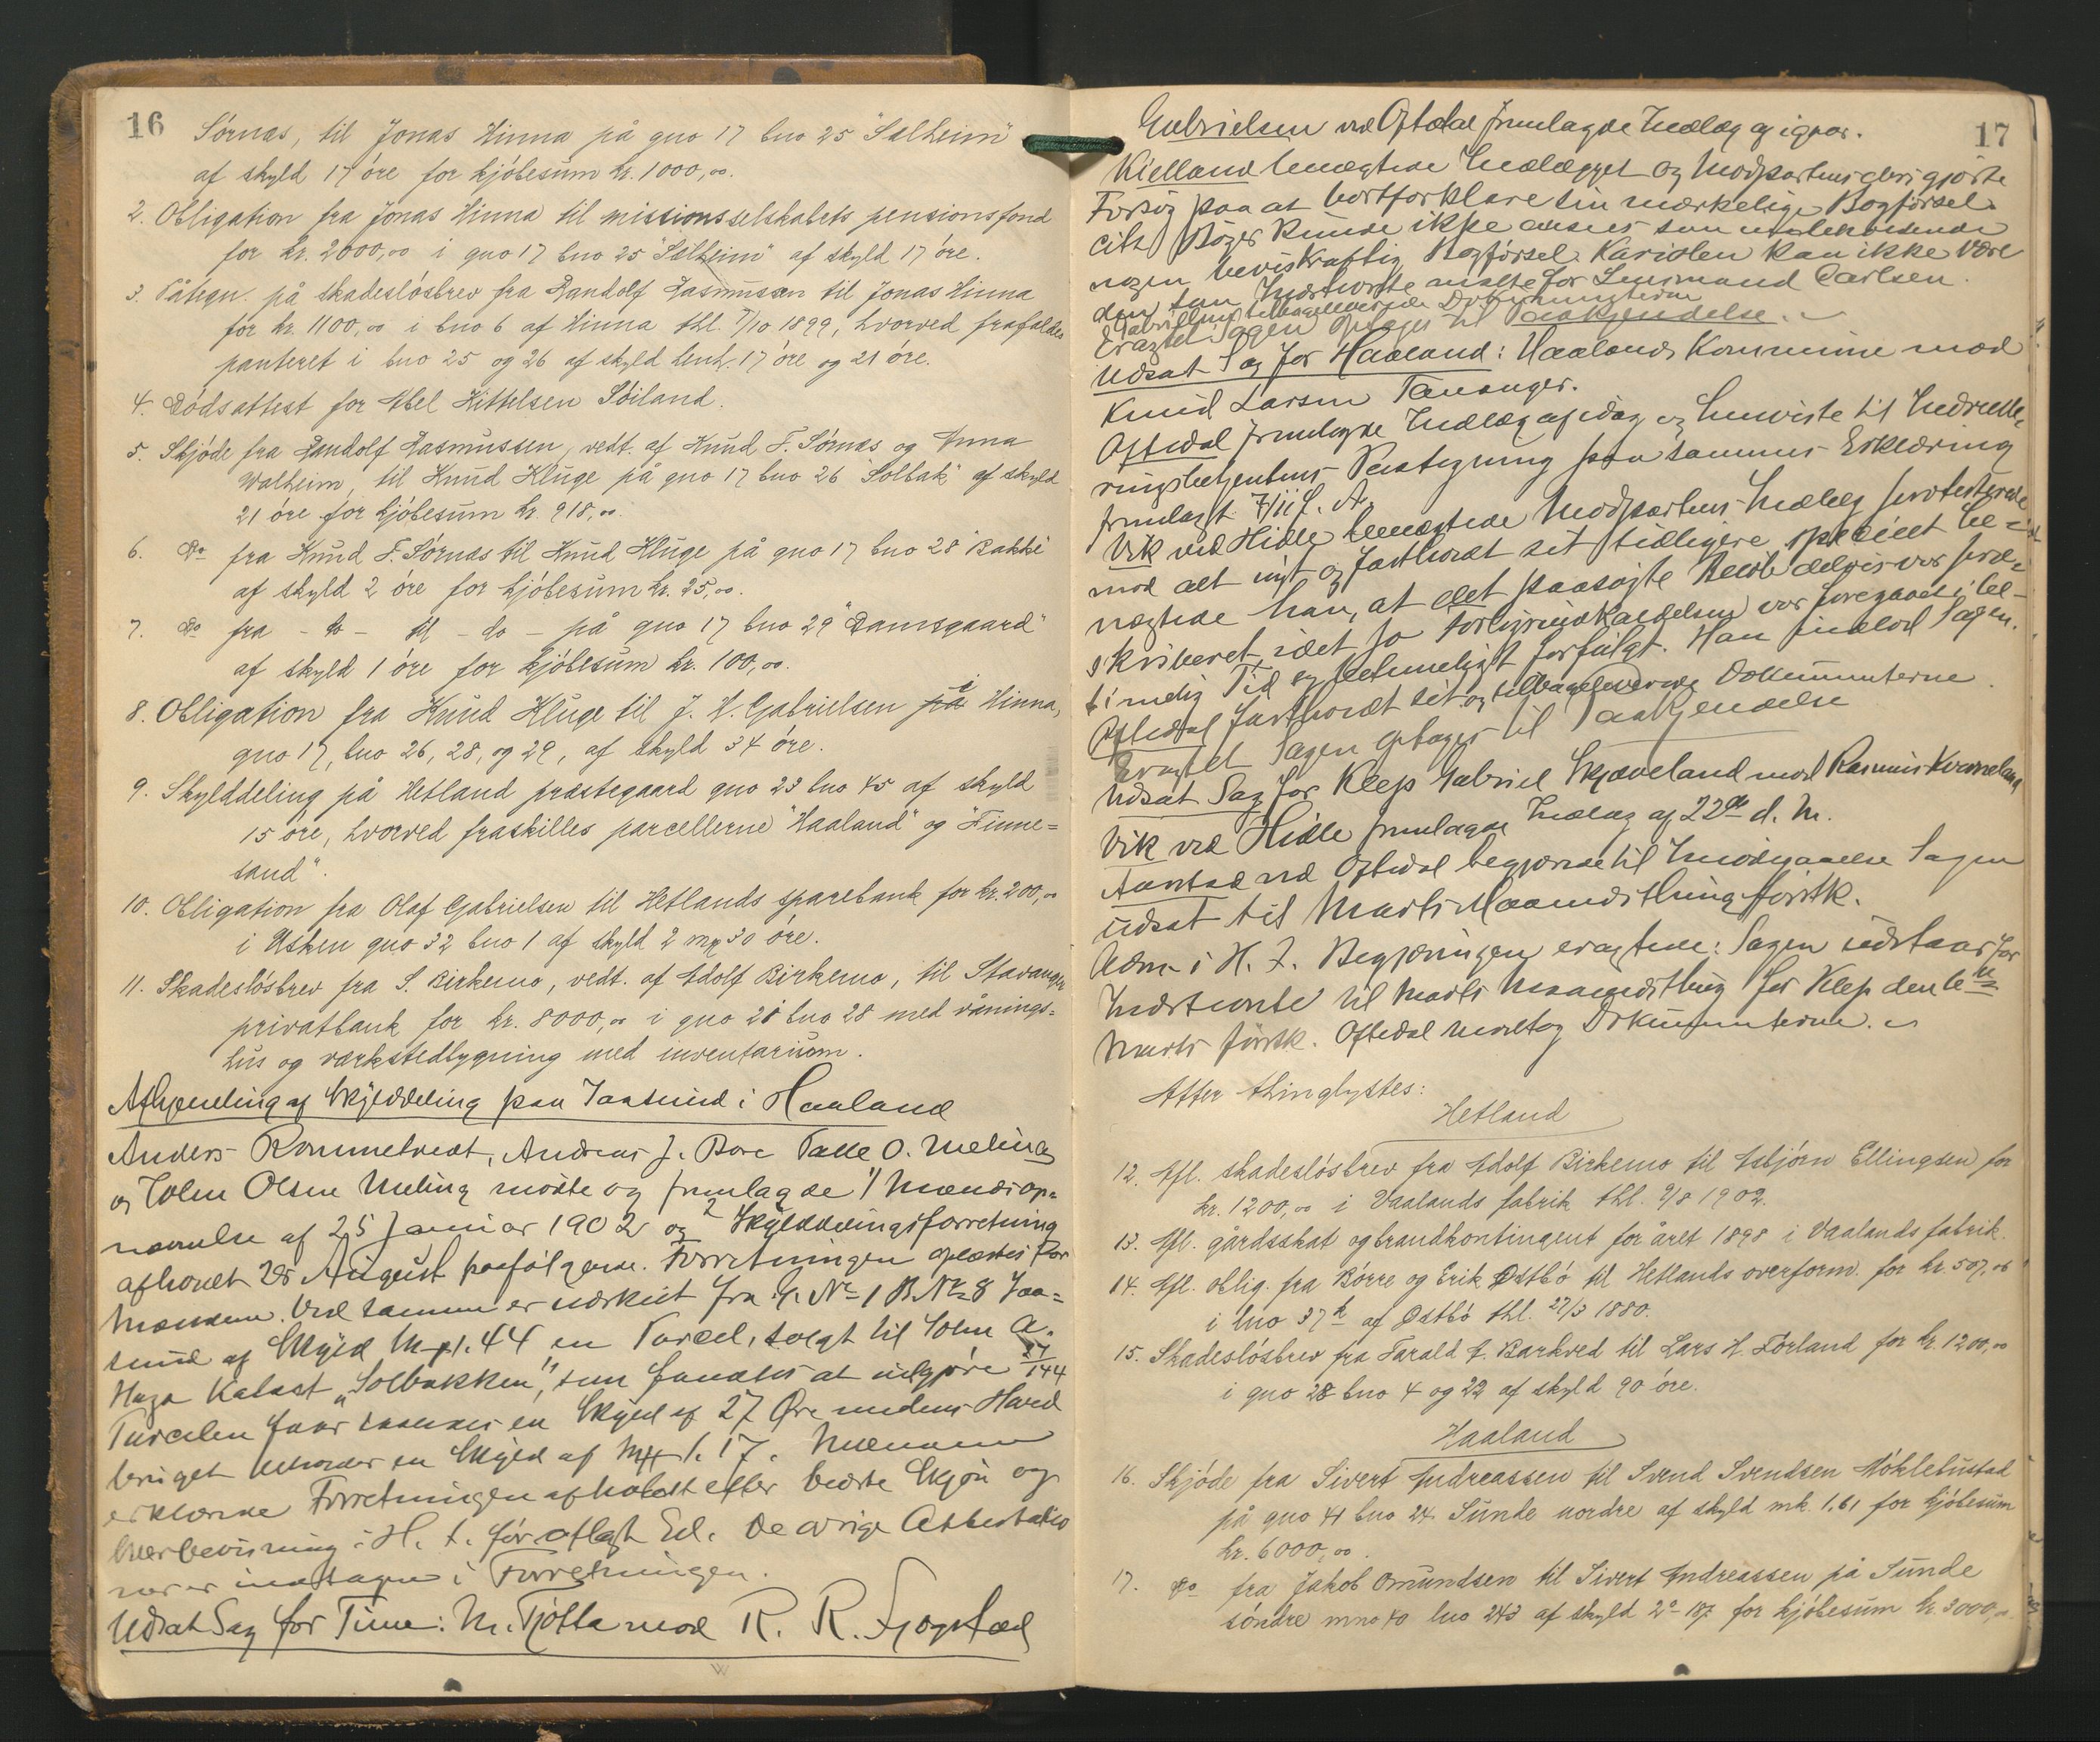 16
Sørnæs, til Jonas Hinna på gno 17 bno 25 "Solheim"
af skyld 17 öre for kjöbesum kr. 1000,00.
2. Obligation fra Jonas Hinna til missionsselskabets pensionsfond
for kr. 2000,00 i gno 17 bno 25 "Solheim" af skyld 17 öre.
3. Påtegn. på skadeslösbrev fra Randolf Rasmussen til Jonas Hinna
for kr. 1100,00 i bno 6 af Hinna thl. 7/10 1899, hvorved frafaldes
panteret i bno 25 og 26 af skyld henh. 17 öre og 21 öre.
4. Dödsattest for Abel Kittelsen Söiland.
5. Skjöde fra Randolf Rasmussen, vedt. af Knud F. Sörnæs og Anna
Walheim, til Knud Kluge på gno 17 bno 26 "Solbak" af skyld
21 öre for kjöbesum kr. 918,00.
6. Do fra Knud F. Sörnæs til Knud Kluge på gno 17 bno 28 "Bakke"
af skyld 2 öre for kjöbesum kr. 25,00.
7. Do fra - do - til - do - på gno 17 bno 29 "Damsgaard"
af skyld 1 öre for kjöbesum kr. 100,00.
8. Obligation fra Knud Kluge til J. H. Gabrielsen på i Hinna,
gno 17, bno 26, 28, og 29, af skyld 34 öre.
9. Skylddeling på Hetland præstegaard gno 23 bno 45 af skyld
15 öre, hvorved fraskilles parcellerne "Haaland" og "Finne=
sand".
10. Obligation fra Olaf Gabrielsen til Hetlands sparebank for kr. 200,00
i Usken gno 32 bno 1 af skyld 2 mrk 30 öre.
11. Skadeslösbrev fra S. Birkemo, vedt. af Adolf Birkemo, til Stavanger
privatbank for kr. 8000,00 i gno 21 bno 28 med vånings=
hus og værkstedbygning med inventarium.
Afhjemling af Skylddeling paa Jaasund i Haaland
Anders Rommetvedt, Andreas J. Bore Talle O. Meling
og John Olsen Meling mödte og fremlagde 1/ Mændsop=
nævnelse af 25 Januar 1902 og 2 Skylddelingsforretning
afholdt 28 August paafölgende. Forretningen oplæstes for
Mændene. Ved samme er udskilt fra G. No 1 B. No 8 Jaa=
sund af Skyld Mrk 1.44 en Parcel, solgt til John A.
Haga kaldet "Solbakken", som fandtes at udgjöre 27/144
Parcelen faar saaledes en Skyld af 27 Øre medens Hoved
bruget beholder en Skyld af Mrk 1.17. Mændene
erklærede Forretningen afholdt efter bedste Skjön og
Overbevisning i H. t. för aflagt Ed. De övrige Attestatio
ner er indtagne i Forretningen.
Udsat Sag for Time: M. Tjötta mod R. R. Fjogstad
17
Gabrielsen ved Oftedal fremlagde Indlæg af igaar.
Kielland benægtede Indlægget og Modpartens deri gjorte
Forsög paa at bortforklare sin mærkelige Bogförsel.
Cits. Böger kunde ikke ansees som indeholdende
nogen beviskraftig Bogförsel. Kariolen kan ikke være
den som Indstevnte maatte for Lensmand Carlsen.
Gabrielsen tilbageleverede Dokumenterne
Eragtet Sagen optages til Paakjendelse.
Udsat Sag for Haaland: Haalands Kommune mod
Knud Larsen Tananger.
Oftedal fremlagde Indlæg af idag og henviste til Inddrivelses
ringsbetjentens Paategning paa sammes Erklæring
fremlagt 7/11 f. A.
Vik ved Hidle benægtede Modpartens Indlæg protesterede
mod alt nyt og fastholdt sit tidligere specielt be=
nægtede han, at det paasøgte Belöb delvis var præ=
skriberet, idet jo Forligsindkaldelsen var foregaaet i be=
timelig Tid og betimeligt forfulgt. Han indlod Sagen.
Oftedal fastholdt sit og tilbageleverede Dokumenterne.
Eragtet Sagen optages til Paakjendelse
Udsat Sag for Klep Gabriel Skjæveland mod Rasmus Kverneland
Vik ved Hidle fremlagde Indlæg af 22de d. M.
Aarstad ved Oftedal begjærede til Imödegaaelse Sagen
udsat til Marts Maanedsthing förstk.
Adm. i H. t. Begjæringen eragtede: Sagen udstaar for
Indstevnte til Marts Maanedsthing for Klep den 6te
Marts förstk. Oftedal modtog Dokumenterne.
Atter thinglystes:
Hetland
12. Afl. skadeslösbrev fra Adolf Birkemo til Asbjörn Ellingsen for
kr. 1200,00 i Vaalands fabrik thl. 9/8 1902.
13. Afl. gårdsskat og brandkontingent for året 1898 i Vaalands fabrik.
14. Afl. oblig. fra Börre og Erik Østbö til Hetlands overform. for kr. 507,06
i lno 37 b af Østbö thl. 27/3 1880.
15. Skadeslösbrev fra Tarald A. Barkved til Lars H. Förland for kr. 1200,00
i gno 28 bno 4 og 22 af skyld 90 öre.
Haaland
16. Skjöde fra Sivert Andreassen til Svend Svendsen Möklebustad
på gno 41 bno 24 Sunde nordre af skyld mk 1.61 for kjöbesum
kr. 6000,00.
17. Do fra Jakob Omundsen til Sivert Andreassen på Sunde
söndre mno 40 lno 243 af skyld 2-107 for kjöbesum kr. 3000,00.